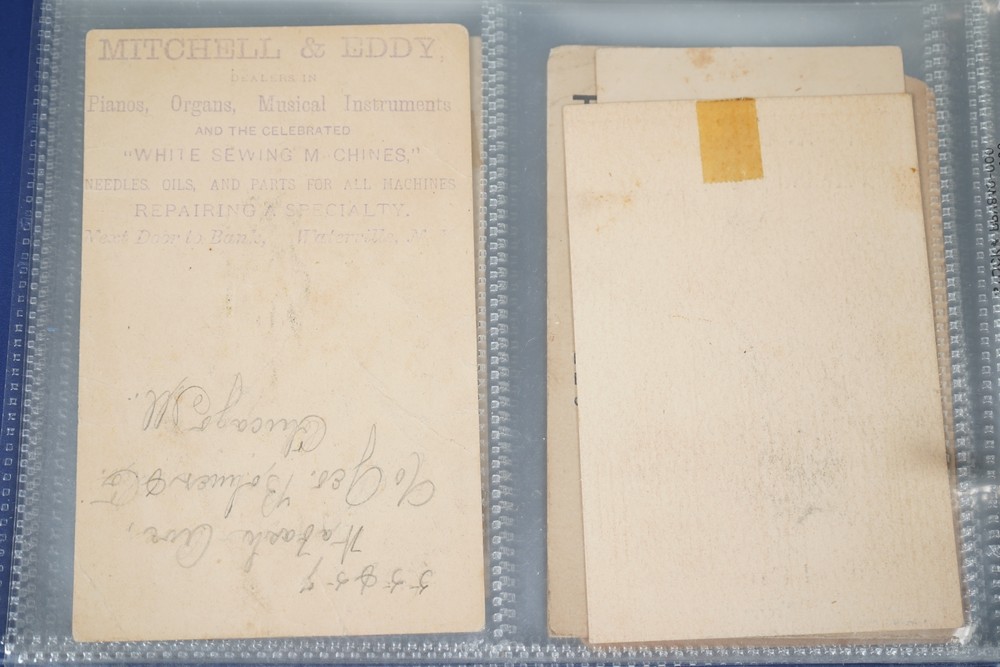 MITCHELL & EDDY,
DEALERS IN
Pianos, Organs, Musical Instruments
AND THE CELEBRATED
"WHITE SEWING M CHINES,"
NEEDLES, OILS, AND PARTS FOR ALL MACHINES
REPAIRING A SPECIALTY.
Next Door to Bank, Waterville,
55 & 57
Wabash Ave,
Geo.
Chicago Ill.